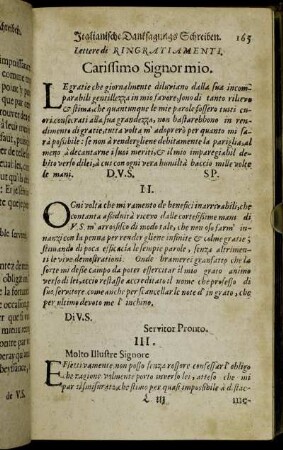 Italianische Dancksagungs Schreiben. 165
Lettere di RINGRATIAMENTI.
Carissimo Signor mio.
LE gratie che giornalmente diluviano dalla sua incom-
parabili gentilezza in mio favore, sono di tanto rilievo
& stima, che quantunque le mie parole fossero tutti
cuori, consecrati alla sua grandezza, non bastarebbono in ren-
dimento di gratie, tutta volta m' adoprerò per quanto mi sa-
rà possibile: se non à renderglene debitamente la pariglia, al
meno à decantarne i suoi meriti, & il mio impareggiabil de-
bito verso dilei, à cui con ogni vera humiltà baccio mille volte
le mani. D.V.S. SP.
II.
OGni volta che mi ramento de beneficii inarrivabili, che
contanta assiduità ricevo dalle cortesissime mani di
V.S. m' arrossisco di modo tale, che non oso farm' in-
nanzi con la penna per render gliene infinite & colme gratie;
stimando di poca efficacia le sempie parole, senza altrimen-
ti le vive demostrationi. Onde bramerei granfatto che la
sorte mi desse campo da poter essercitar il mio grato animo
verso di lei, accio restasse accreditato il nome che professo di
sua servitore come anche per iscancellar le note d' ingrato, che
per ultimo devoto me l' inchino.
Di V.S.
Servitor Pronto.
III.
Molto Illustre Signore
EFfettivamente non posso senza rossore confessar l' obligo
che ragionevolmente porto inverso lei, atteso che mi
par si smisurato, che stimo per quasi impossibile à distac-
L iij me-
de V.S.